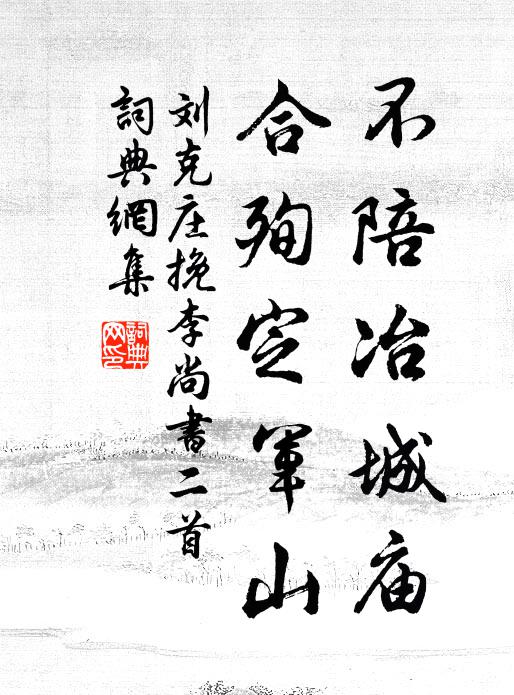 不陪冶城庙
合殉定军山
刘克庄挽李尚書二首
詞典網集
詞典网印